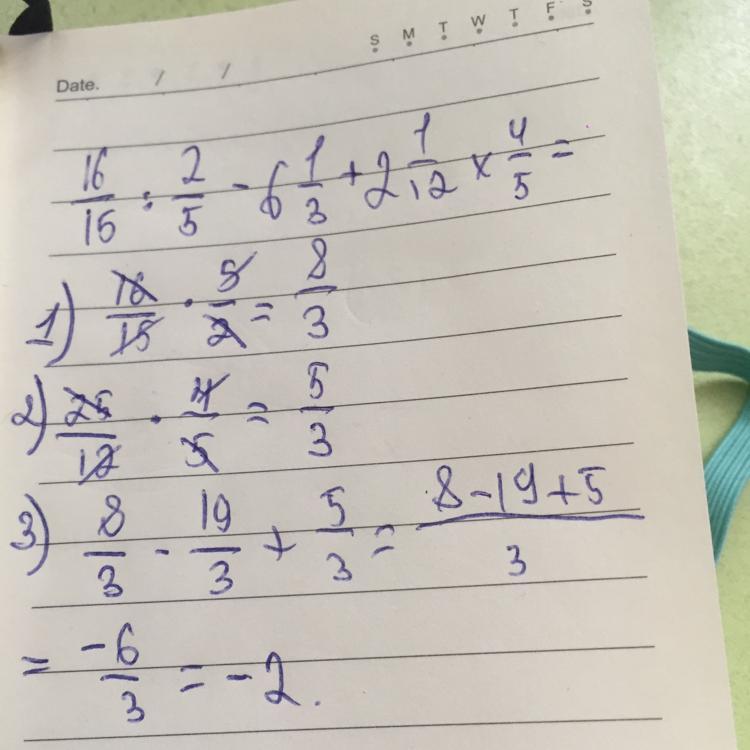 S M T W T F S
Date. / /
16/15 : 2/5 - 6 1/3 + 2 1/12 × 4/5 =
1) 16/15 · 5/2 = 8/3
2) 25/12 · 4/5 = 5/3
3) 8/3 - 19/3 + 5/3 = 8-19+5/3
= -6/3 = -2.